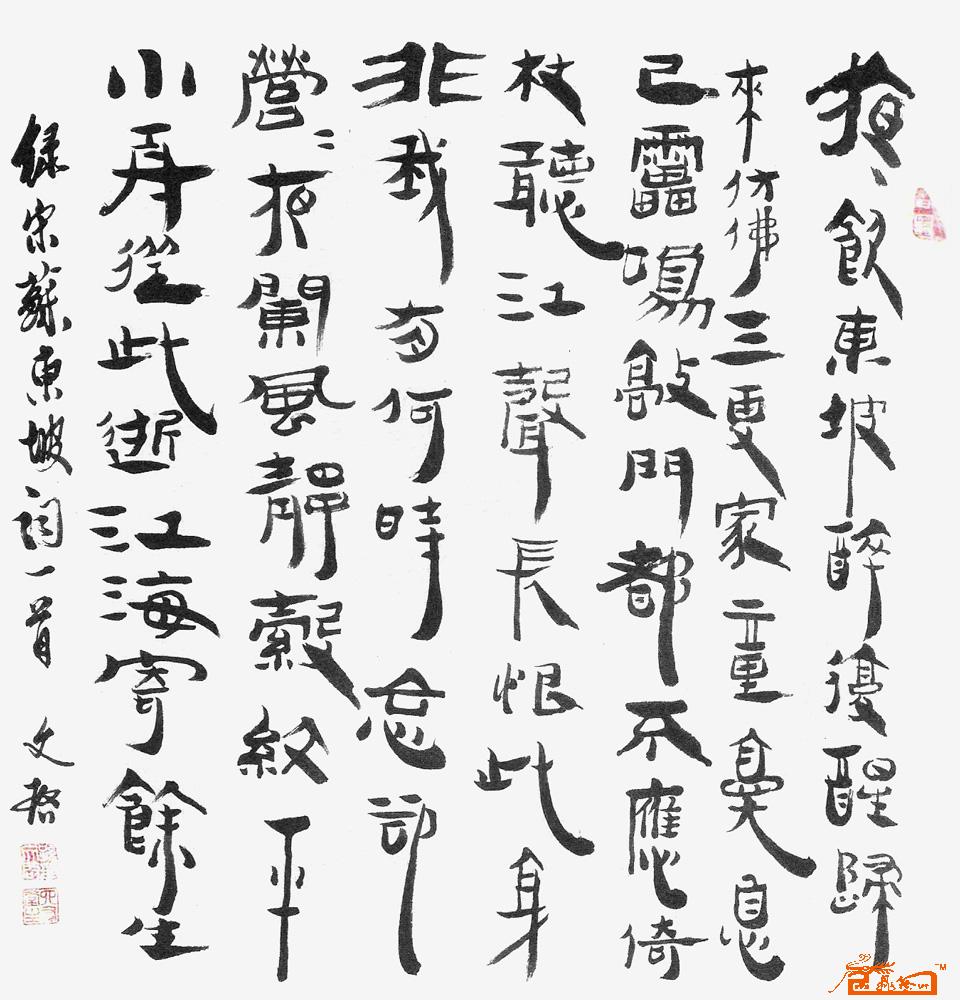 夜飲東坡醉復醒歸
來仿佛三更家童鼻息
已靁鳴敲門都不應倚
杖聽江聲長恨此身
非我有何時忘卻
營〻夜闌風靜縠紋平
小舟從此逝江海寄餘生
録宋蘇東坡詞一首 文